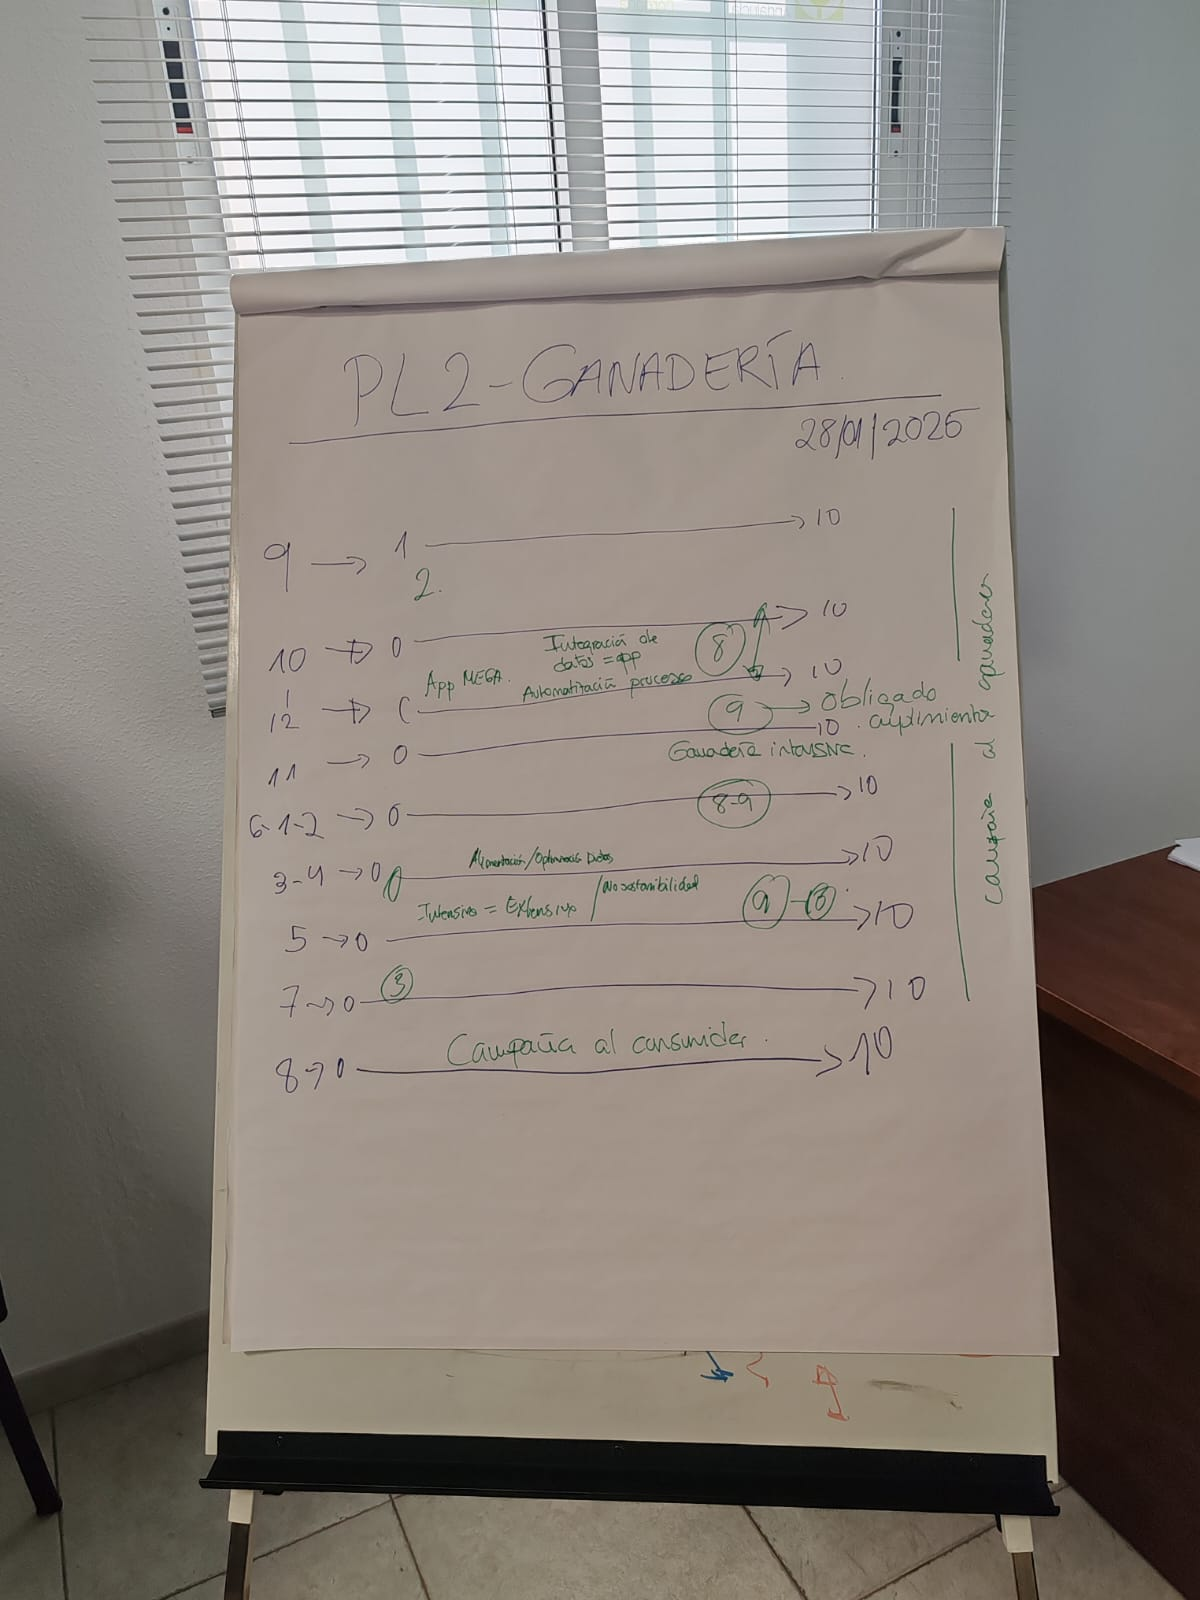 PL2-GANADERÍA
28/01/2025
9 → 1 → 10
2.
10 → 0 → 10
Integración de
datos = app
8
App MEGA.
Automatización procesos
12 → 0 → 10
9 → obligado
cumplimiento
11 → 0 → 10
Ganadería intensiva.
6-1-2 → 0 → 10
8-9
3-4 → 0 → 10
Alimentación/Optimización
Intensivo = Extensivo / No sostenibilidad
9 - 8
5 → 0 → 10
3
7 → 0 → 10
Campaña al consumidor.
8 → 0 → 10
campaña al ganadero